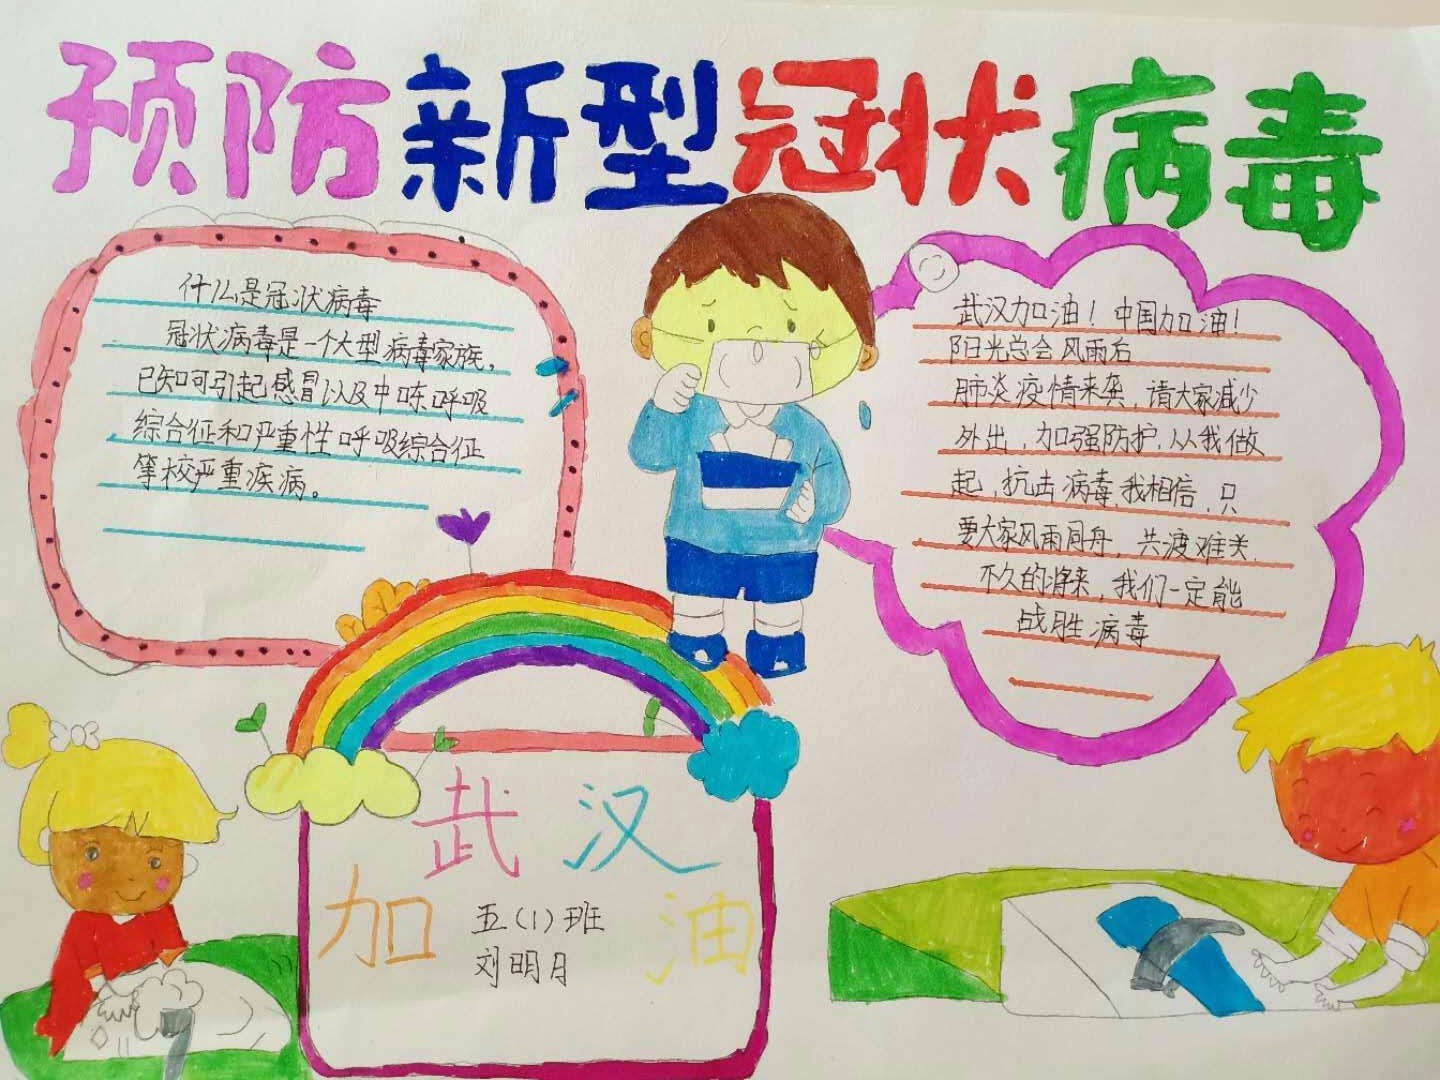 预防新型冠状病毒
什么是冠状病毒
冠状病毒是一个大型病毒家族，
已知可引起感冒以及中东呼吸
综合征和严重性呼吸综合征
等校严重疾病。
武汉加油！中国加油！
阳光总会风雨后
肺炎疫情来袭，请大家减少
外出，加强防护.从我做
起，抗击病毒.我相信，只
要大家风雨同舟，共渡难关.
不久的将来，我们一定能
战胜病毒
武汉
加油
五(1)班
刘明月